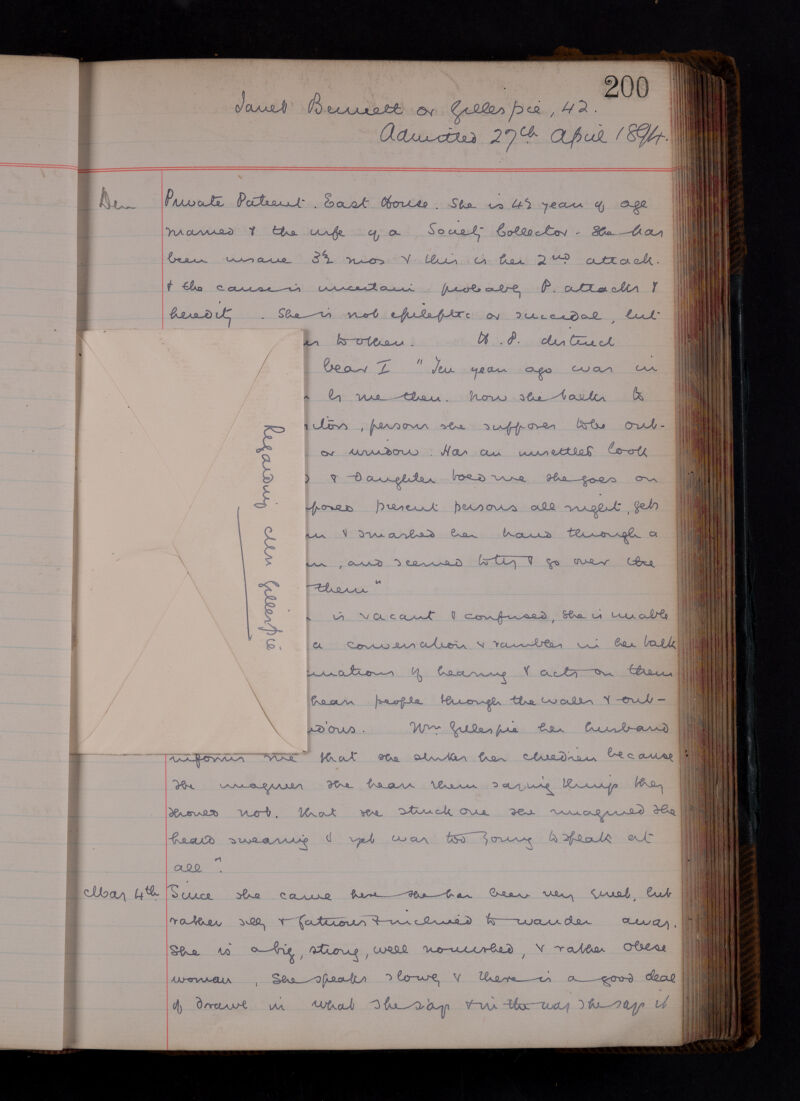 200
Janet Bennett or Gillespie, 42.
Admitted 27th April 1894.
Dem
Private Patient. East House. She is 42 years of age
married & the wife of a Society Collector. She has
been insane 3½ mos & this is her 2nd attack.
& the cause is uncertain probably P. attacks &
heredity. She is not epileptic or suicidal, but
to others. distinct
bear I "Ten years ago was in
me then. Now she talks to
, persons she supposes to be out-
or window. Has an unsettled look
& Daughter told me she goes on
present persons all night, gets
& smashed her hand through a
, and seemed to try & go over the
them"
is vacant & confused, she is unable
a conversation & rambles in her talk
of hearing & acts on them
hears people through the walls & out-
Wm Gillespie her husband
informs me that she strikes her children because
she imagines she hears them saying things they
should not. That she struck one she imagined she
heard swearing & yet was too young to speak at
all".
May 4th Since she came here she has been very quiet, but
rather silly & fatuous & inclined to wander away.
She is a big, strong, well nourished, & rather obese
woman, She speaks slowly & there is a good deal
of drawl in what she says & in the way she says it
Regarding Mrs Gillespie